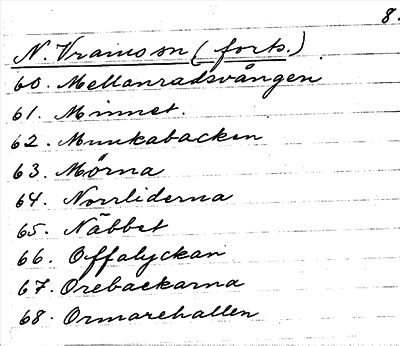 8.
N. Vrams sn (forts.)
60. Mellanradsvången
61. Minnet.
62. Munkabacken
63. Mörna
64. Norrliderna
65. Näbbet
66. Offalyckan
67. Orebackarna
68. Ormarehallen